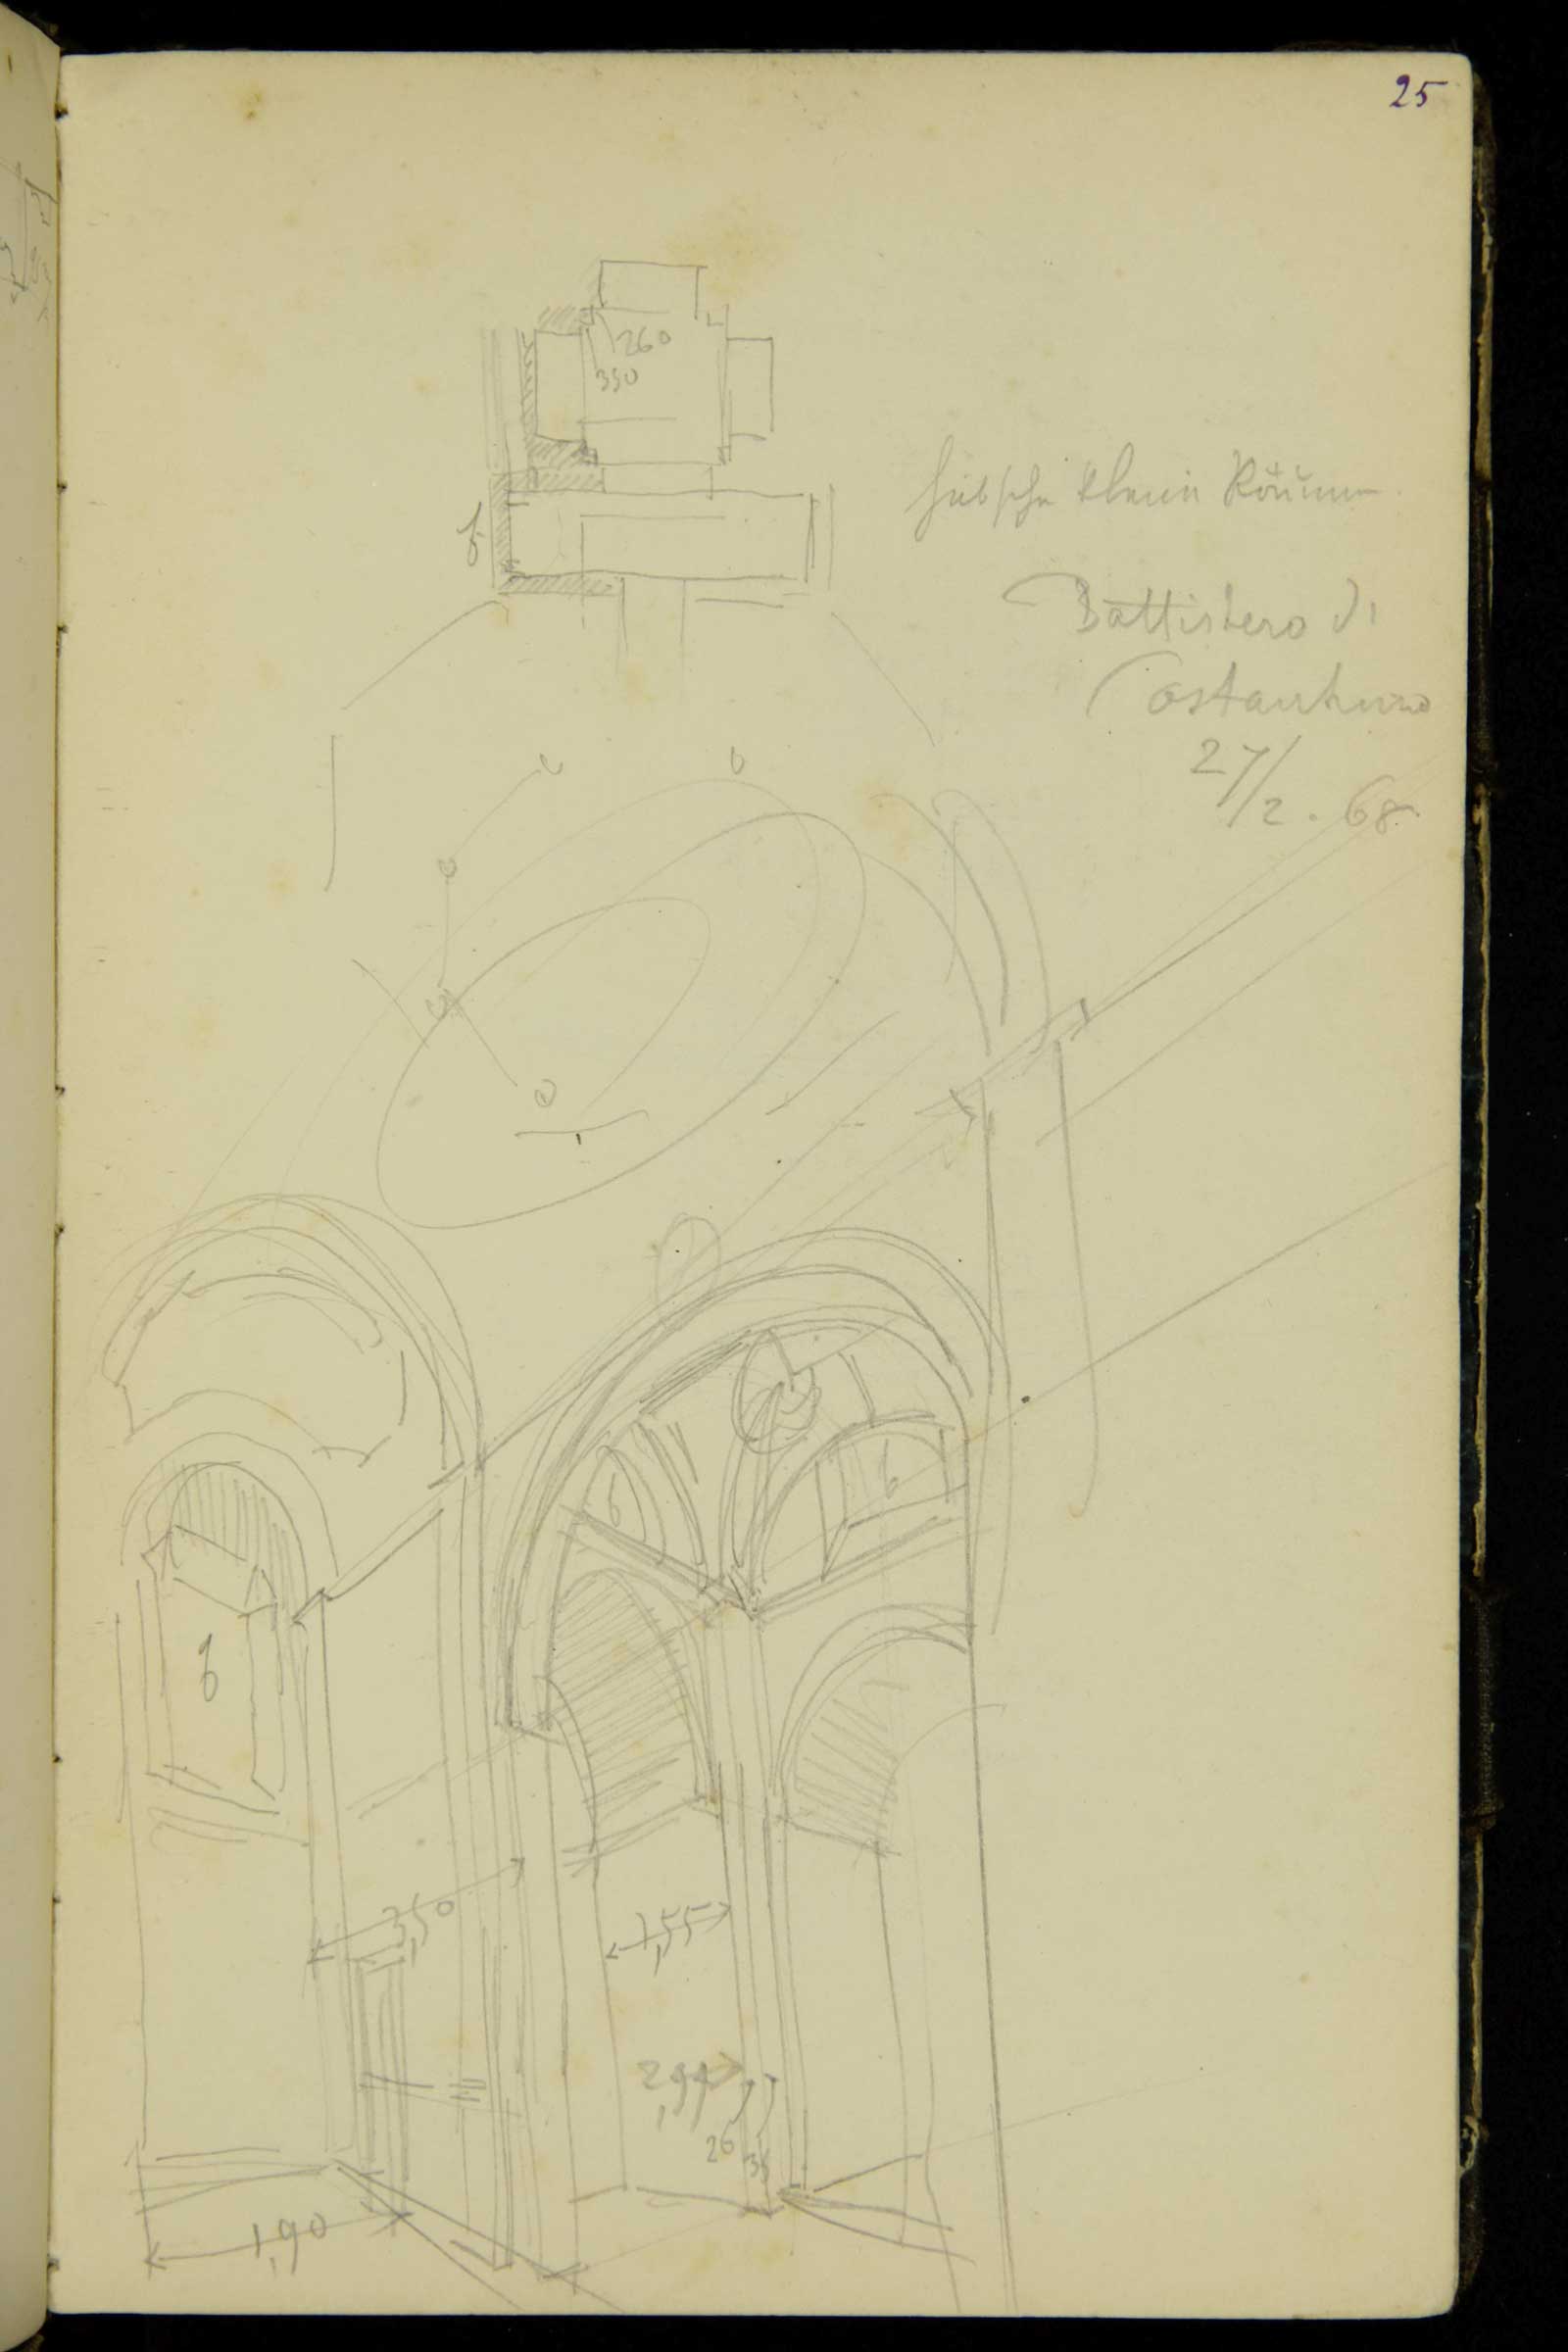 25
260
350
b
hübsche kleine Räume.
Battistero di
Costantino
27/2. 68
b
b
b
3,50
1,55
2,44
26
35
1,90